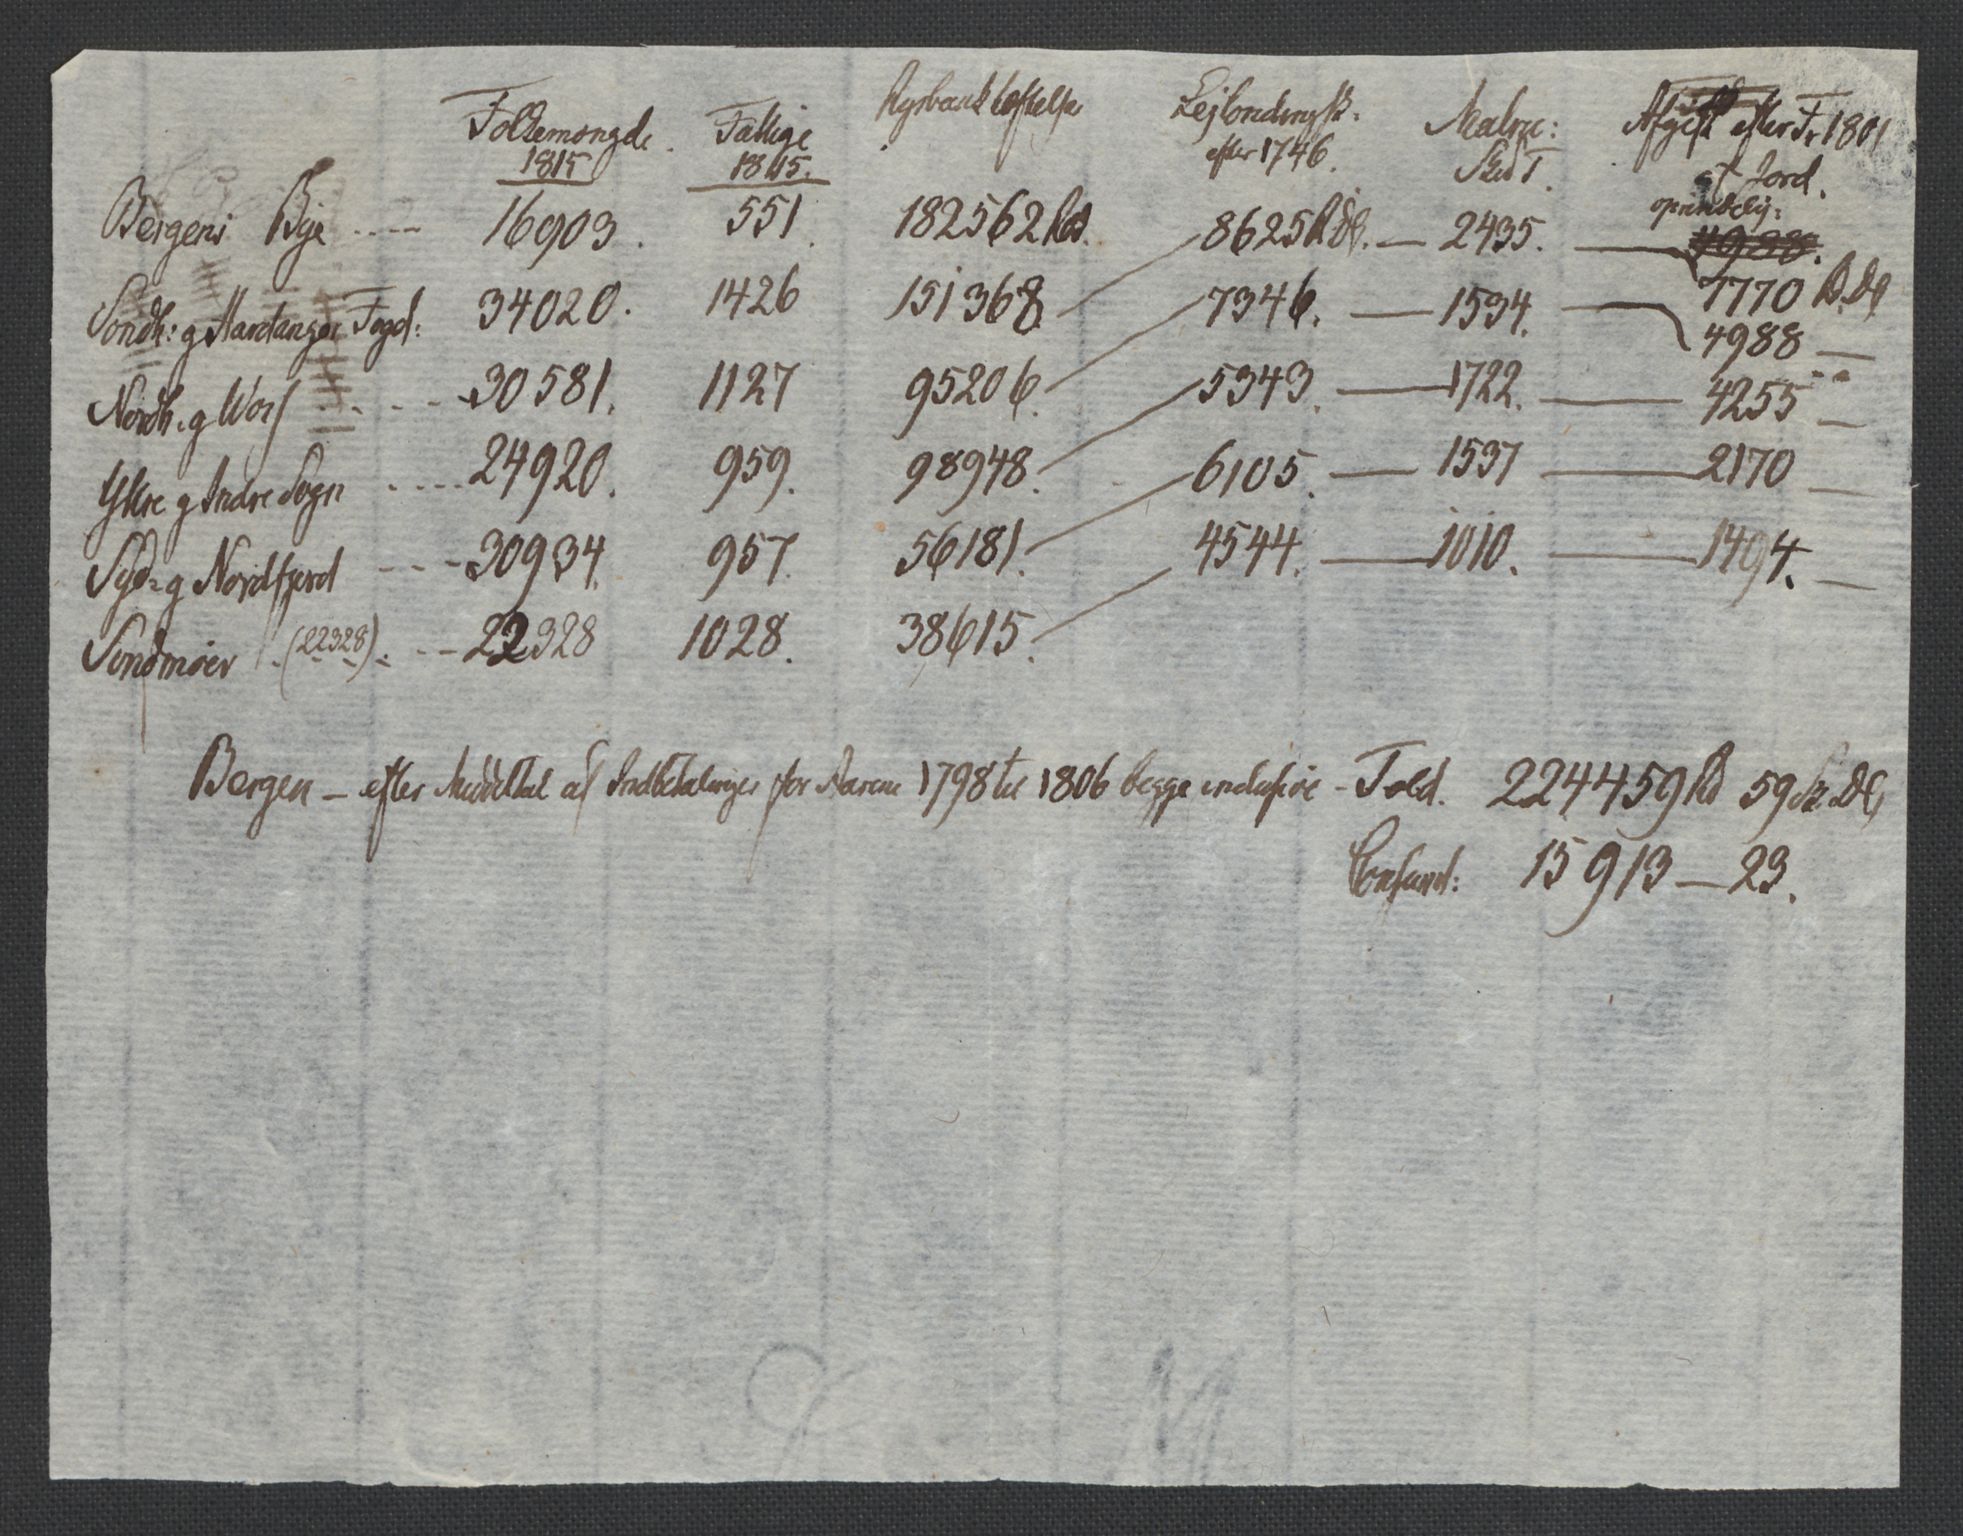 Folkemængde. Fattige Rigsbank Hæftelse Lejlændingssk: Matric: Afgift efter Fr 1801
1815 1815. efter 1746. Sk: T. af Jord.
oprindelig:
Bergens Bye .... 16903. 551. 182562 Rd. 8625 R.Dl. — 2435. — 4988.
Sondh: g Hardanger Fogd: 34020. 1426 151368. 7346. — 1534. — 7770 R.Dl
4988 —
Nordh. g Vos .... 30581. 1127 95206. 5343. — 1722. — 4255 —
Yttre g Indre Sogn .... 24920. 959. 98948. 6105. — 1537 — 2170 —
Syd= g Nordfjord .... 30934. 957. 56181. 4544. — 1010. — 1494. —
Sondmøer (22328). -- 22328 1028. 38615.
Bergen — efter Middeltal af Indbetalinger for Aarene 1798 til 1806 begge inclusive - Told. 224459 Rd 59 Sk. Dl
Consumt: 15913 — 23.